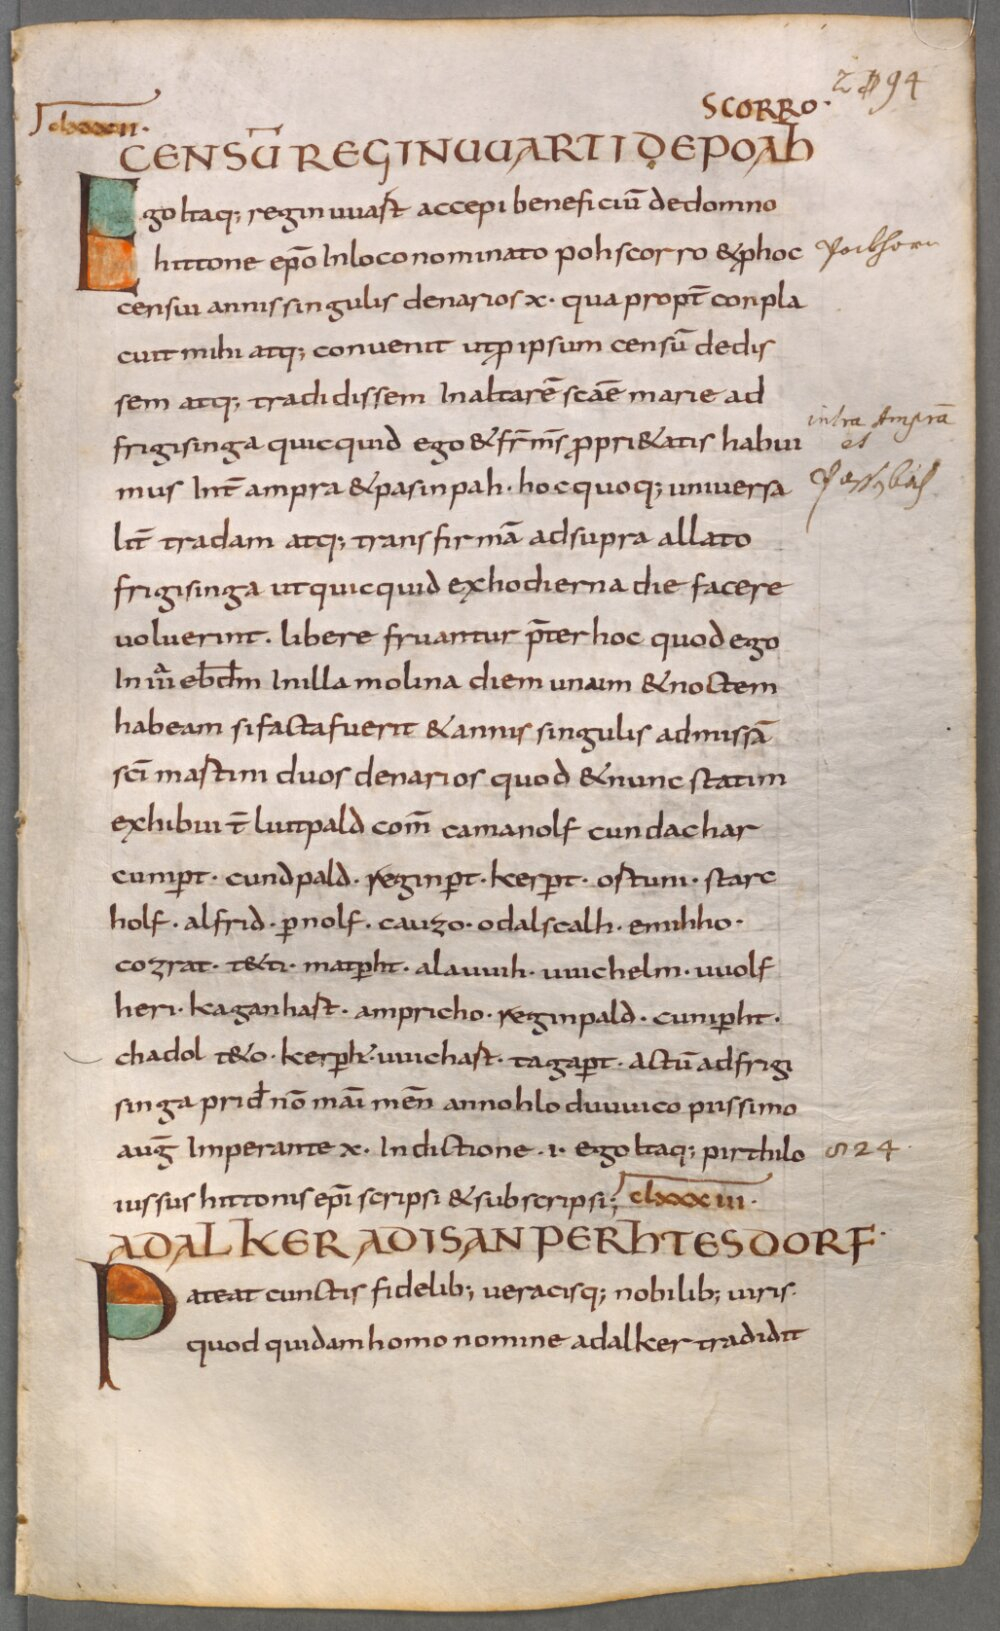 294
SCORRO·
clxxxii·
CENSŪ REGINUUARTI DE POAH
Ego Itaq; reginuuast accepi beneficiū de domno
hittone ep̄o In loco nominato pohscorro & p hoc
pockhorn
censui annis singulis denarios x· quapropt̄ conpla
cuit mihi atq; conuenit ut p ipsum censū dedis
sem atq; tradidissem In altarē sc̄ae marie ad
intra Amprā
frigisinga quicquid ego & fr̄ m̄s propri&atis habui
et
mus Int̄ ampra & pasinpah· hoc quoq; uniuersa
lit̄ tradam atq; transfirmā ad supra allato
frigisinga ut quicquid ex hodierna die facere
uoluerint· libere fruantur p̄ter hoc quod ego
In iiii ebd̄m In illa molina diem unam & noctem
habeam si facta fuerit & annis singulis ad missā
sc̄i martini duos denarios quod & nunc statim
exhibui t̄ liutpald com̄ camanolf cundachar
cumpt· cundpald· reginpt· kerpt· ostuni· starc
holf· alfrid· pnolf· cauzo· odalscalh· emihho·
cozrat· t&ti· matpht· alauuih· uuichelm· uuolf
heri· kaganhast· ampricho· reginpald· cunipht·
chadol t&o· kerph· uuichast· tagapt· actū ad frigi
singa prid nō mai mēn anno hloduuuico piissimo
auḡ Imperante x· Indictione· i· ego Itaq; pirthilo
824·
iussus hittonis ep̄i scripsi & subscripsi;
clxxxiii·
ADALKER AD ISANPERHTESDORF·
Pateat cunctis fidelib; ueracisq; nobilib; uiris·
quod quidam homo nomine adalker tradidit